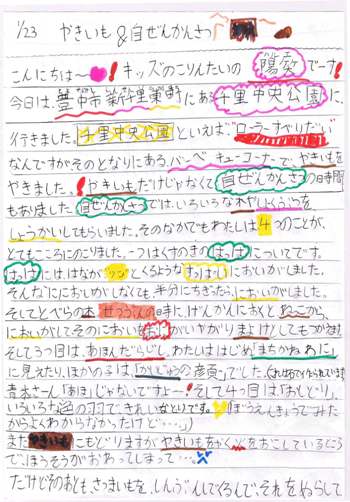 1/23 やきいも&自ぜんかんさつ
こんにちは〜! キッズのこりんたいの 陽教です!
今日は、豊中市新千里東町にある千里中央公園に、
行きました。千里中央公園といえば"ローラーすべりだい"
なんですがそのとなりにある、バーベキューコーナーで、やきいもを
やきました。! やきいもだけじゃなくて自ぜんかんさつの時間
もありました 自ぜんかんさつでは、いろいろな木や
しょうかいしてもらいました。そのなかでもわたしは4つのことが、
とてもこころにのこりました。一つはくすのきのはっぱについてです。
はっぱにははながツンとくるような すっぱいにおいがしました。
そんなににおいしがしなくても、半分にちぎったら、においがしました。
そしてとべらの木 せつぶんの日に、げんかんにおくと
においがしてそのにおいをおにがいやがり まよけとしてもつかます
そして3つ目は、あほんだらじし、わたしははじめ「まちかねわに」
に見えたり、ほかの子は、「かいじゅうの
青木さーん「あほ」じゃないですよー! そして4つ目は、「おしどり」
いろいろな色の羽で、きれいなとりです。(ぼうえんきょうでみた
からよくわからなかったけど…。)
また やきいもにもどりますが、やきいもをやく火をおこしているところ
で、ほうそうがおわってしまって…。
だけどそのあとも、さつまいもを、しんぶんしでくるんで、それをぬらして